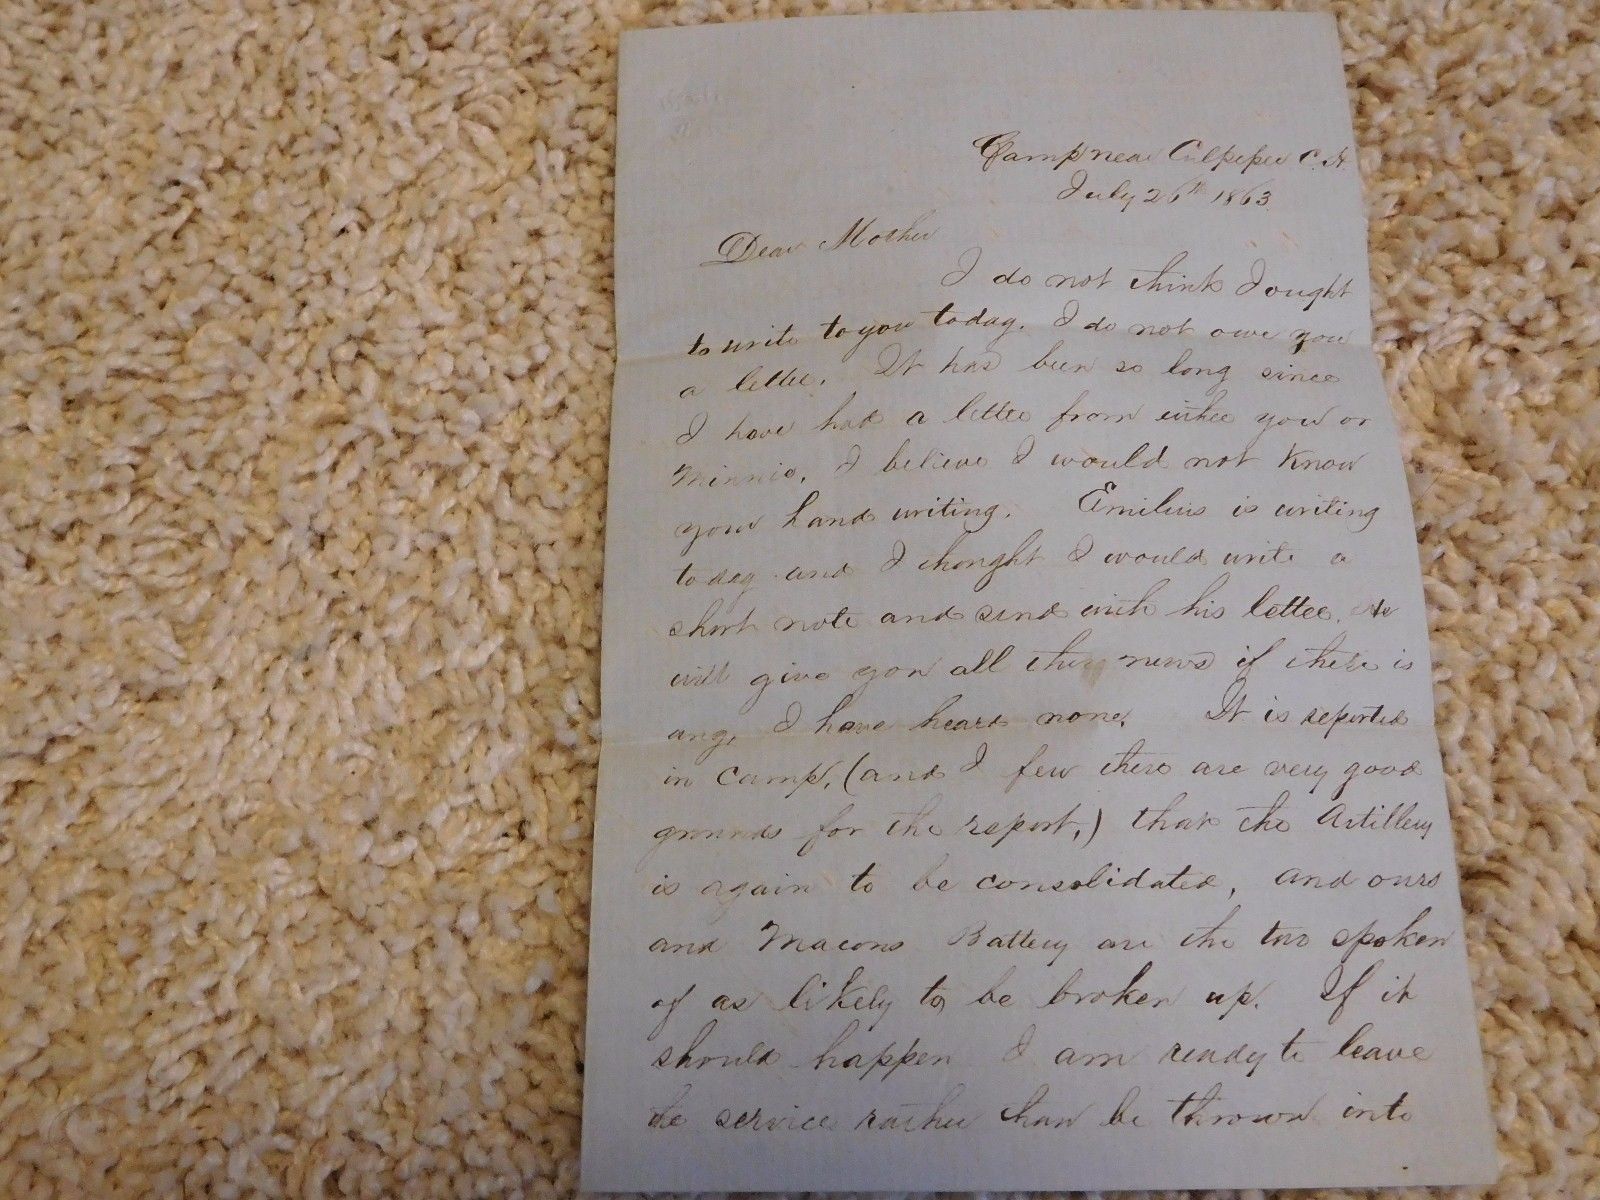 Camp near Culpeper C.H.
July 26th 1863.
Dear Mother
I do not think I ought
to write to you today. I do not owe you
a letter. It has been so long since
I have had a letter from either you or
Minnie, I believe I would not know
your hand writing. Emilius is writing
today and I thought I would write a
short note and send with his letter. He
will give you all the news if there is
any, I have heard none. It is reported
in camp, (and I few there are very good
grounds for the report,) that the Artillery
is again to be consolidated, and ours
and Macons Battery are the two spoken
of as likely to be broken up. If it
should happen I am ready to leave
the service rather than be thrown into